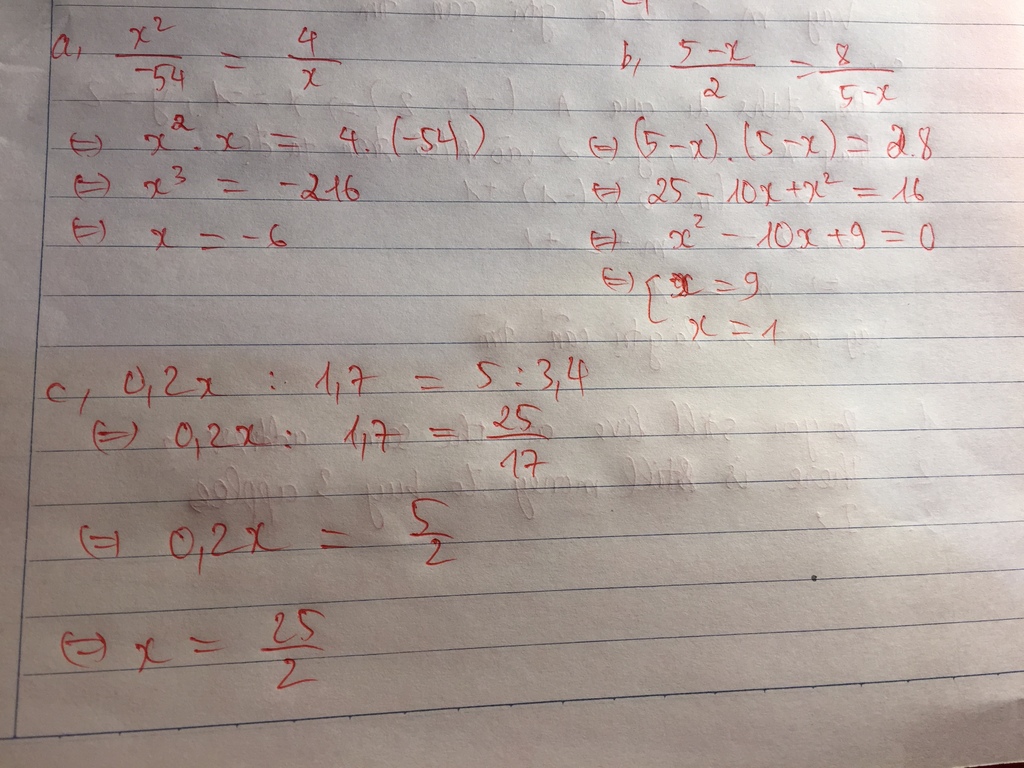 a, x²/-54 = 4/x
⇔ x².x = 4.(-54)
⇔ x³ = -216
⇔ x = -6
b, 5-x/2 = 8/5-x
⇔ (5-x).(5-x) = 2.8
⇔ 25 - 10x + x² = 16
⇔ x² - 10x + 9 = 0
⇔ [ x = 9
x = 1
c, 0,2x : 1,7 = 5 : 3,4
⇔ 0,2x : 1,7 = 25/17
⇔ 0,2x = 5/2
⇔ x = 25/2